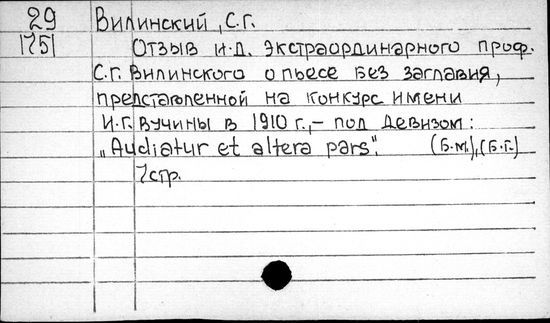 29 Вилинский, С.Г.
1751 Отзыв и.д. экстраординарного проф.
С.Г. Вилинского о пьесе без заглавия,
представленной на конкурс имени
И.Г. Вучины в 1910 г.,- под девизом:
„Audiatur et altera pars". (Б.м.), (Б.г.)
7стр.